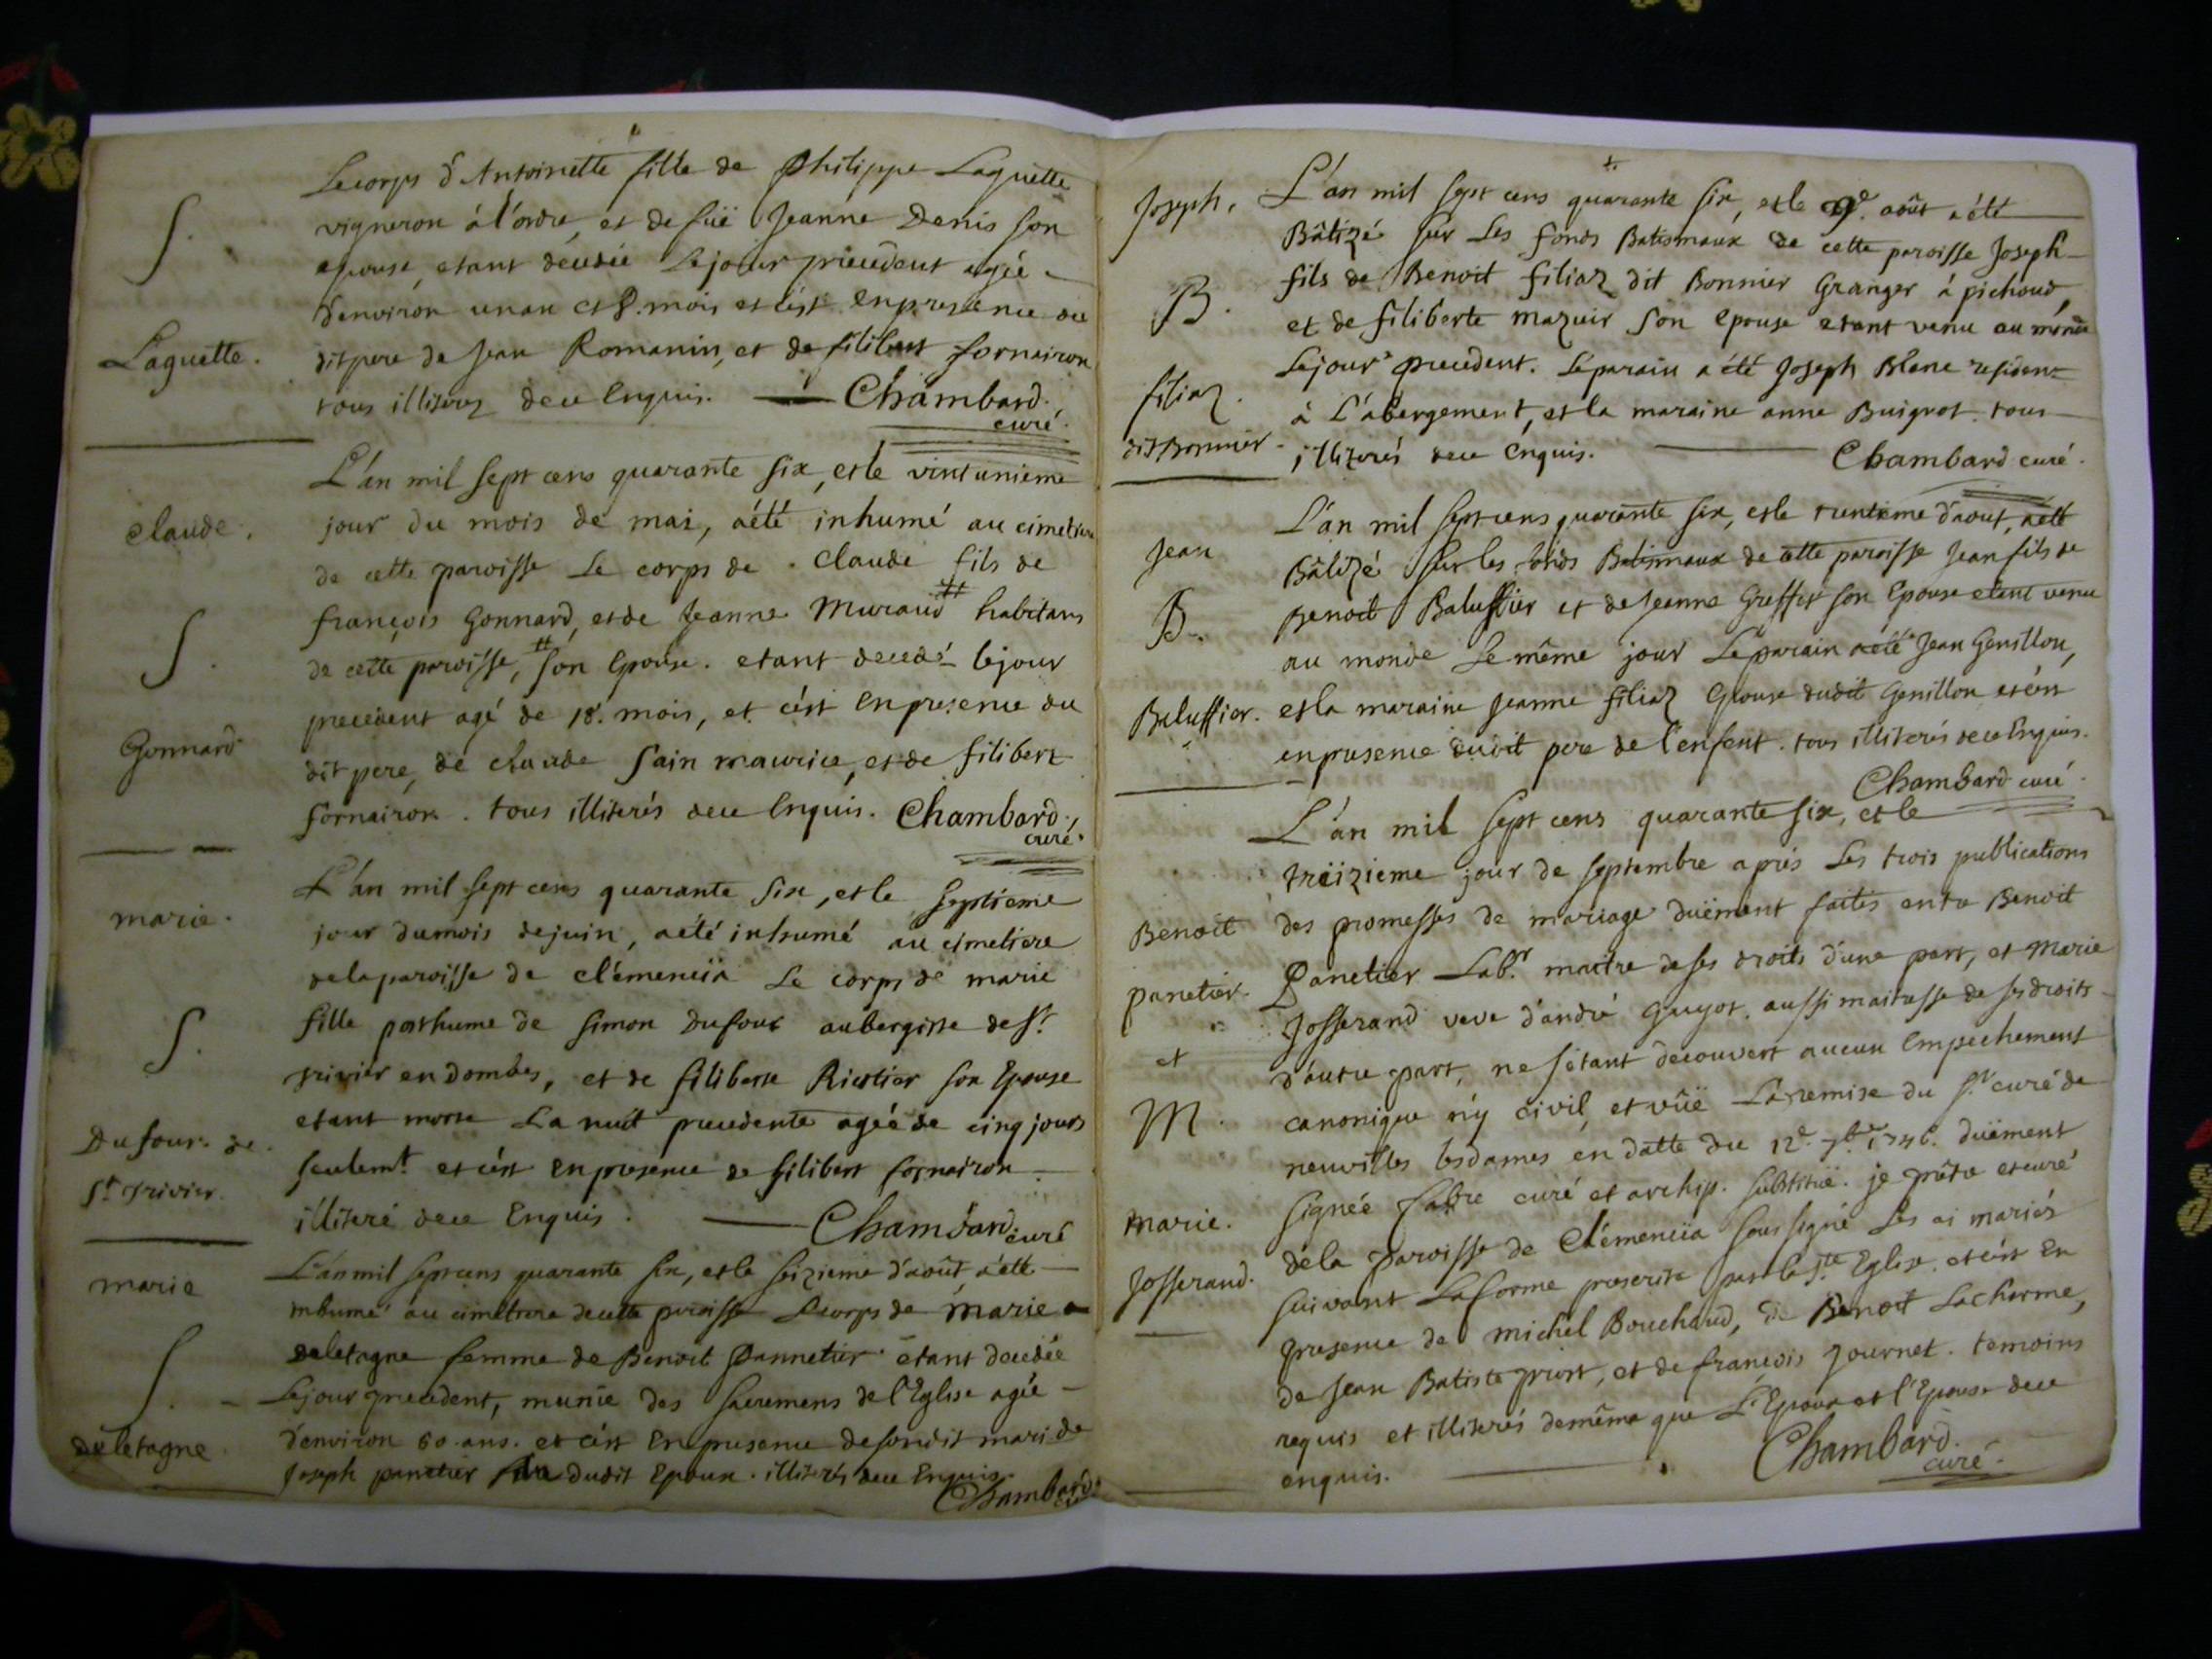 Le corps d'Antoinette fille de Philippe Laguette
vigneron à l'ordre, et de fuë Jeanne Denis son
epouse, etant decedée le jour precedent agée
d'environ un an et 8. mois et c'est en presence du
dit pere de Jean Romanin, et de filibert fornairon
tous illiterez de ce enquis. Chambard.
curé.
S.
Laguette.
L'an mil sept cens quarante six, et le vint unieme
jour du mois de mai, a été inhumé au cimetiere
de cette paroisse Le corps de Claude fils de
françois Gonnard, et de Jeanne Muraud # habitans
de cette paroisse, # son Epouse. etant decedé le jour
precedent agé de 18. mois, et c'est en presence du
dit pere, de claude Sain maurice, et de filibert
fornairon. tous illiterés de ce enquis. Chambard,
curé.
claude.
S.
Gonnard
L'an mil sept cens quarante six, et le septieme
jour du mois de juin, a été inhumé au cimetiere
de la paroisse de clémencia Le corps de marie
fille posthume de simon Dufour aubergiste de St.
trivier en dombes, et de filiberte son Epouse
etant morte La nuit precedente agée de cinq jours
seulemt. et c'est en presence de filibert fornairon
illiteré de ce Enquis. Chambard. curé
marie.
S.
Dufour. de
St. trivier.
L'an mil sept cens quarante six, et le seizieme d'août a été
inhumé au cimetiere de cette paroisse Le corps de marie
deletagne femme de Benoit Pannetier etant decedée
Le jour precedent, munie des sacremens de l'Eglise agée
d'environ 60. ans. et c'est en presence de sondit mari de
Joseph panetier dudit Epoux. illiterés de ce Enquis.
Chambard.
marie
S.
deletagne
L'an mil sept cens quarante six, et le 9e. août a été
Bâtizé sur Les fonds Batismaux de cette paroisse Joseph
fils de Benoit filiaz dit Bonnier Granger à pichoud,
et de filiberte mazuir son epouse etant venu au monde
Le jour precedent. Le parain a été Joseph Blanc resident
à L'abergement, et la maraine anne Buignot. tous
illiterés de ce Enquis. Chambard curé.
Joseph.
B.
filiaz.
dit Bonnier.
L'an mil sept cens quarante six, et le trentieme d'aout, a été
Bâtizé sur les fonds Batismaux de cette paroisse Jean fils de
Benoit Baluffier et de Jeanne Greffet son Epouse etant venu
au monde Le même jour Le parain a été Jean Genillon,
et la maraine Jeanne filiaz Epouse dudit Genillon et c'est
en presence dudit pere de l'enfent. tous illiterés de ce Enquis.
Chambard curé.
Jean
B.
Baluffier.
L'an mil sept cens quarante six, et le
treizieme jour de septembre aprés Les trois publications
des promesses de mariage duëment faites entre Benoit
Panetier Labr. maitre de ses droits d'une part, et Marie
Josserand veve d'andré Guyot. aussi maitresse de ses droits
d'autre part, ne s'étant decouvert aucun Empechement
canonique n'y civil, et vûë La remise du Sr. curé de
neuvilles les dames en datte du 12e. 7bre. 1746. duëment
signée fabre curé et archip. substitué. je prêtre et curé
de la paroisse de Clémencia sous signé Les ai mariés
suivant La forme prescrite par la Ste. Eglise. et c'est En
presence de michel Bouchaud, de Benoit Lacharme,
de Jean Batiste priost, et de françois Journet. temoins
requis et illiterés de même que L'Epoux et l'Epouse de ce
enquis. Chambard.
curé.
Benoit
panetier
et
M.
marie.
Josserand.